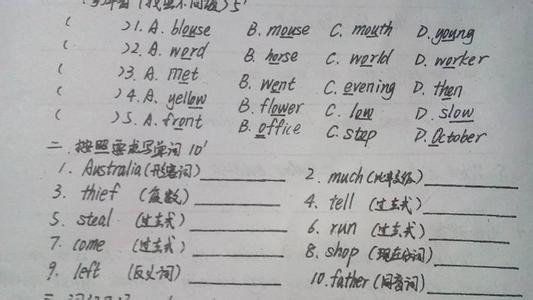 ( )1. A. blouse B. mouse C. mouth D. young
( )2. A. word B. horse C. world D. worker
( )3. A. met B. went C. evening D. then
( )4. A. yellow B. flower C. low D. slow
( )5. A. front B. office C. stop D. October
二. 按照要求写单词 10'
1. Australia (形容词) 2. much (比较级)
3. thief (复数) 4. tell (过去式)
5. steal (过去式) 6. run (过去式)
7. come (过去式) 8. shop (现在分词)
9. left (反义词) 10. father (同音词)